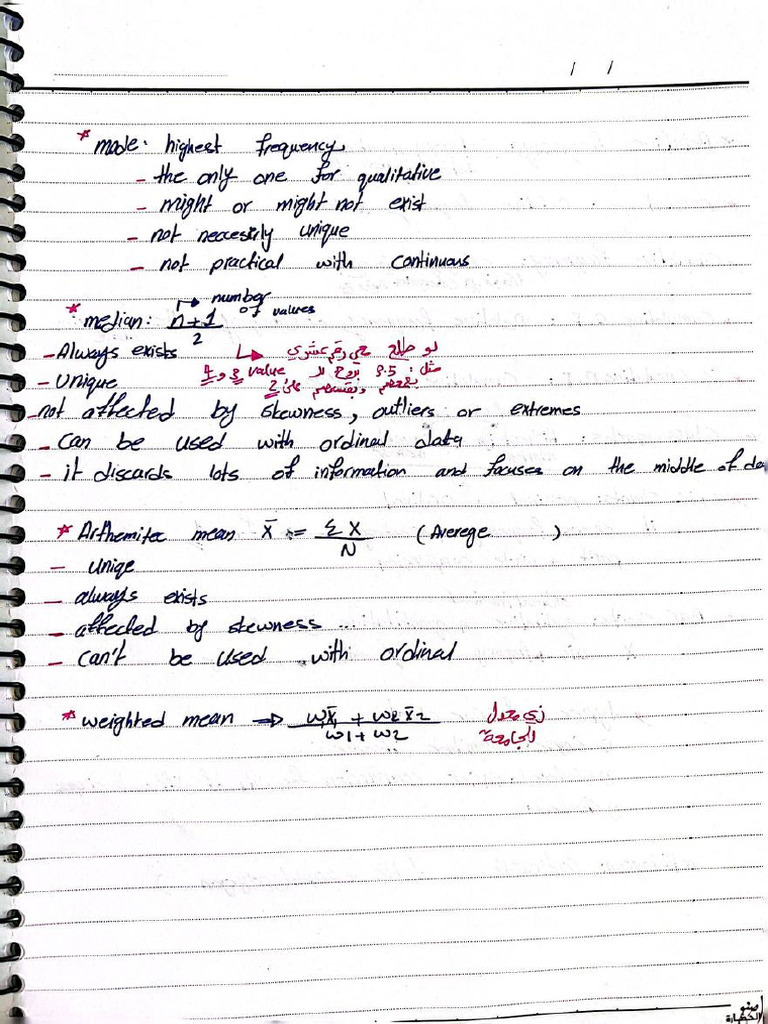 / /
* mode: highest frequency
- the only one for qualitative
- might or might not exist
- not neccesirly unique
- not practical with continuous
* median: n+1 / 2 → number of values
- Always exists
↳ لو طلع معي رقم عشري
- Unique
مثل: 3.5 بروح لـ value 3 و 4
بجمعهم وبقسمهم على 2
- not affected by skewness, outliers or extremes
- can be used with ordinal data
- it discards lots of information and focuses on the middle of da
* Arthemitec mean x̄ := Σx / N (Averege )
- Uniqe
- always exists
- affected by skewness
- can't be used with ordinal
* weighted mean ⇒ w1x̄1 + w2x̄2 / w1 + w2
زي معدل
الجامعة